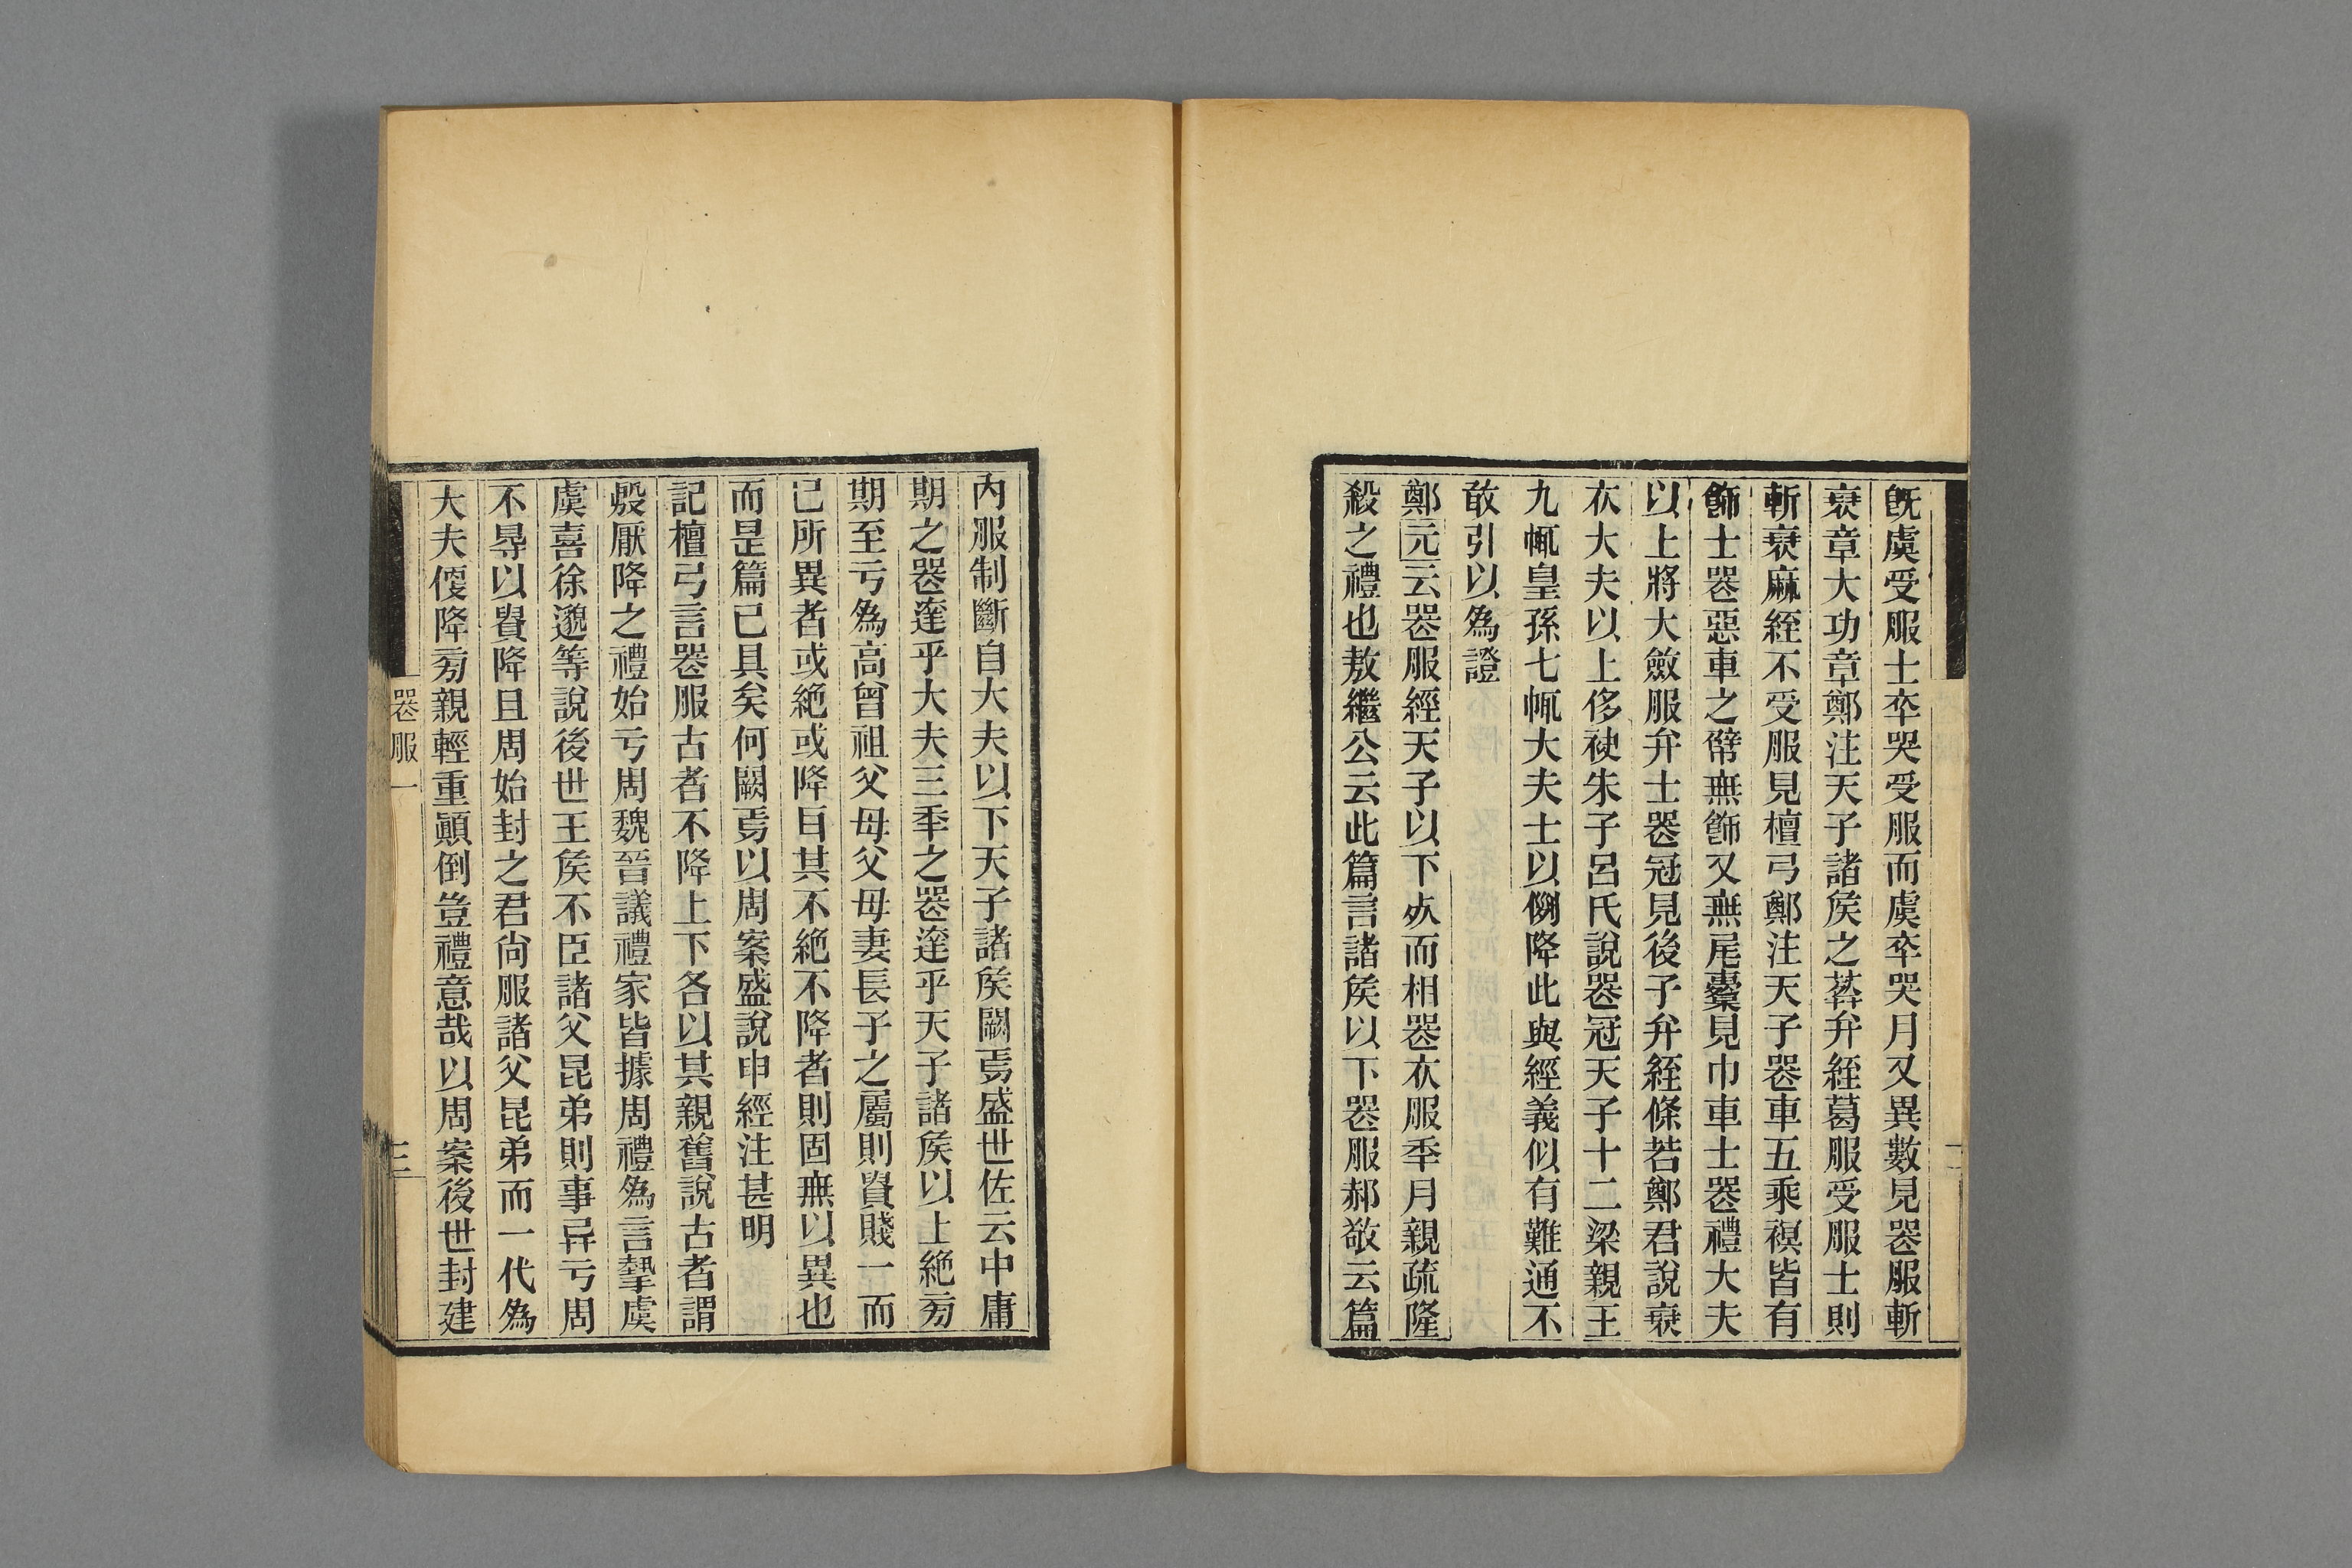 旣虞受服士卒哭受服而虞卒哭月又異數見喪服斬
衰章大功章鄭注天子諸矦之葬弁絰葛服受服士則
斬衰麻絰不受服見檀弓鄭注天子喪車五乘䙪皆有
飾士喪惡車之㡙無飾又無尾櫜見巾車士喪禮大夫
以上將大斂服弁士喪冠見後子弁絰條若鄭君說衰
衣大夫以上侈袂朱子呂氏說喪冠天子十二梁親王
九㡇皇孫七㡇大夫士以倒降此與經義似有難通不
敢引以為證
鄭元云喪服經天子以下㱙而相喪衣服秊月親疏隆
殺之禮也敖繼公云此篇言諸矦以下喪服郝敬云篇
內服制斷自大夫以下天子諸矦闕焉盛世佐云中庸
期之喪達乎大夫三秊之喪達乎天子諸矦以上絕旁
期至亏為高曾祖父母父母妻長子之屬則貴賤一而
已所異者或絕或降㠯其不絕不降者則固無以異也
而是篇已具矣何闕焉以周案盛說申經注甚明
記檀弓言喪服古者不降上下各以其親舊說古者謂
殷厭降之禮始亏周魏晉議禮家皆據周禮為言摯虞
虞喜徐邈等說後世王矦不臣諸父昆弟則事异亏周
不㝵以貴降且周始封之君尙服諸父昆弟而一代為
大夫便降旁親輕重顚倒豈禮意哉以周案後世封建
喪服一
三